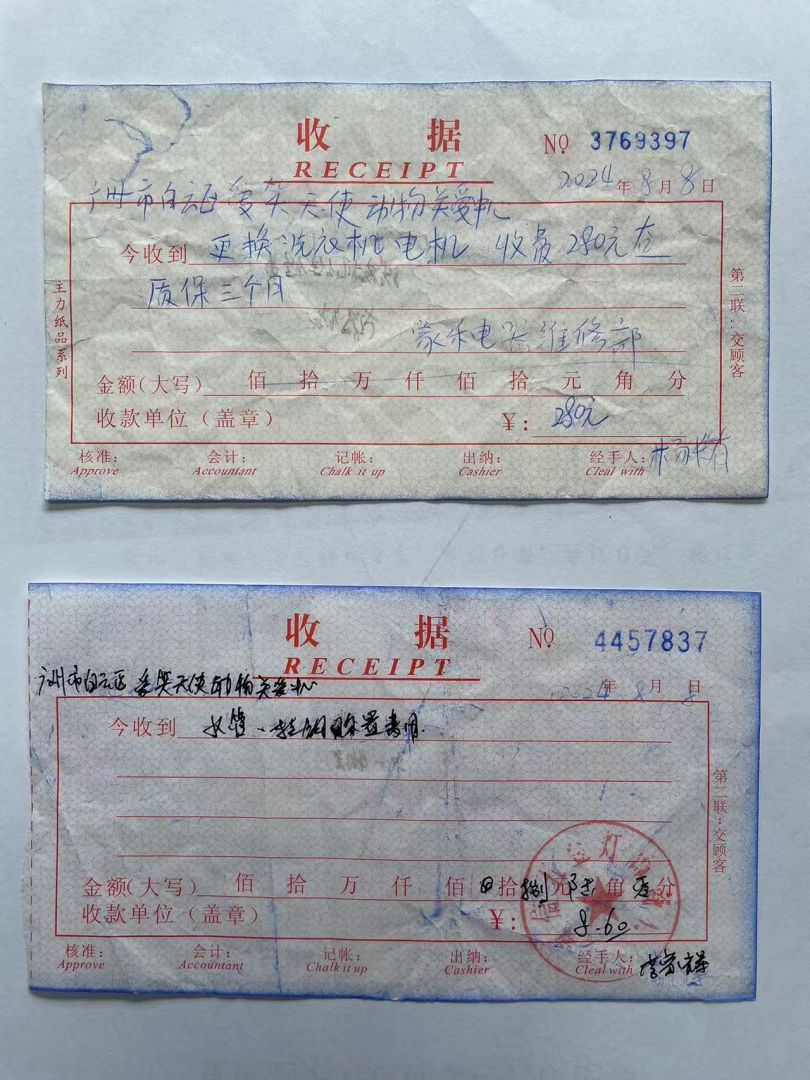 收 据
RECEIPT
NO 3769397
2024年8月8日
广州市白云区爱笑天使动物关爱机
今收到 更换洗衣机电机 收费280元左
质保三个月
家禾电器维修部
金额(大写) 佰 拾 万 仟 佰 拾 元 角 分
收款单位(盖章) ¥: 280元
核准: 会计: 记帐: 出纳: 经手人:
Approve Accountant Chalk it up Cashier Cleal with
主力纸品系列
第二联:交顾客
收 据
RECEIPT
NO 4457837
2024年8月8日
广州市白云区爱笑天使动物关爱机
今收到 水管
金额(大写) 佰 拾 万 仟 佰 拾捌元陆角 分
收款单位(盖章) ¥: 8.60
核准: 会计: 记帐: 出纳: 经手人:
Approve Accountant Chalk it up Cashier Cleal with
第二联:交顾客